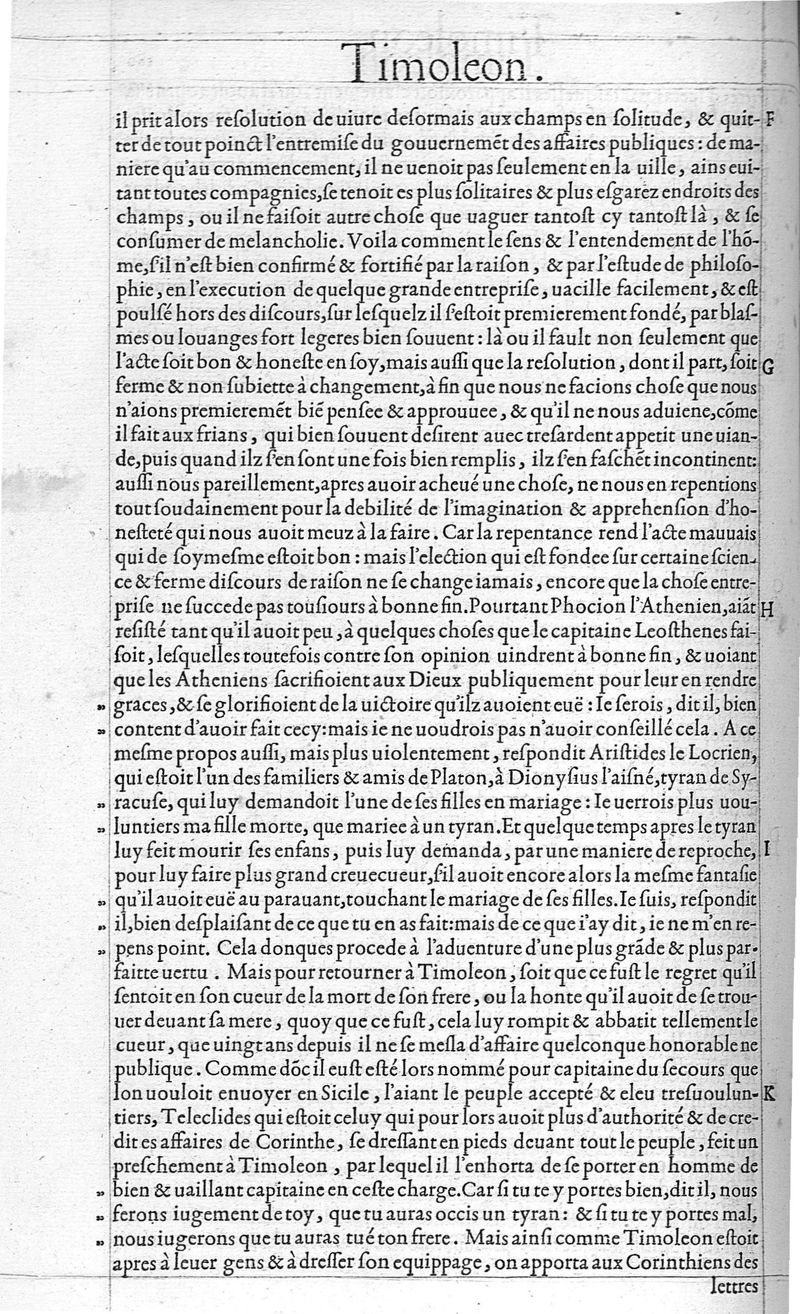 Timoleon.
il prit alors reſolution de uiure deſormais aux champs en ſolitude, & quit- F
ter de tout poinct l'entremiſe du gouuernemẽt des affaires publiques : de ma-
niere qu'au commencement, il ne uenoit pas ſeulement en la uille, ains eui-
tant toutes compagnies, ſe tenoit es plus ſolitaires & plus eſgarez endroits des
champs, ou il ne faiſoit autre choſe que uaguer tantoſt cy tantoſt là, & ſe
conſumer de melancholie. Voila comment le ſens & l'entendement de l'hõ-
me, ſ'il n'eſt bien confirmé & fortifié par la raiſon, & par l'eſtude de philoſo-
phie, en l'execution de quelque grande entrepriſe, uacille facilement, & eſt
poulſé hors des diſcours, ſur leſquelz il ſ'eſtoit premierement fondé, par blaſ-
mes ou louanges fort legeres bien ſouuent : là ou il fault non ſeulement que
l'acte ſoit bon & honeſte en ſoy, mais auſſi que la reſolution, dont il part, ſoit G
ferme & non ſubiette à changement, à fin que nous ne facions choſe que nous
n'aions premieremẽt biẽ penſee & approuuee, & qu'il ne nous aduiene, cõme
il fait aux frians, qui bien ſouuent deſirent auec treſardent appetit une uian-
de, puis quand ilz ſ'en ſont une fois bien remplis, ilz ſ'en faſchẽt incontinent:
auſſi nous pareillement, apres auoir acheué une choſe, ne nous en repentions
tout ſoudainement pour la debilité de l'imagination & apprehenſion d'ho-
neſteté qui nous auoit meuz à la faire. Car la repentance rend l'acte mauuais
qui de ſoymeſme eſtoit bon : mais l'election qui eſt fondee ſur certaine ſcien-
ce & ferme diſcours de raiſon ne ſe change iamais, encore que la choſe entre-
priſe ne ſuccede pas touſiours à bonne fin. Pourtant Phocion l'Athenien, aiãt H
reſiſté tant qu'il auoit peu, à quelques choſes que le capitaine Leoſthenes fai-
ſoit, leſquelles toutefois contre ſon opinion uindrent à bonne fin, & uoiant
que les Atheniens ſacrifioient aux Dieux publiquement pour leur en rendre
„ graces, & ſe glorifioient de la uictoire qu'ilz auoient euë : Ie ſerois, dit il, bien
„ content d'auoir fait cecy: mais ie ne uoudrois pas n'auoir conſeillé cela. A ce
meſme propos auſſi, mais plus uiolentement, reſpondit Ariſtides le Locrien,
qui eſtoit l'un des familiers & amis de Platon, à Dionyſius l'aiſné, tyran de Sy-
„ racuſe, qui luy demandoit l'une de ſes filles en mariage : Ie uerrois plus uou-
„ luntiers ma fille morte, que mariee à un tyran. Et quelque temps apres le tyran
luy feit mourir ſes enfans, puis luy demanda, par une maniere de reproche, I
pour luy faire plus grand creuecueur, ſ'il auoit encore alors la meſme fantaſie
„ qu'il auoit euë au parauant, touchant le mariage de ſes filles. Ie ſuis, reſpondit
„ il, bien deſplaiſant de ce que tu en as fait: mais de ce que i'ay dit, ie ne m'en re-
„ pens point. Cela donques procede à l'aduenture d'une plus grãde & plus par-
faitte uertu. Mais pour retourner à Timoleon, ſoit que ce fuſt le regret qu'il
ſentoit en ſon cueur de la mort de ſon frere, ou la honte qu'il auoit de ſe trou-
uer deuant ſa mere, quoy que ce fuſt, cela luy rompit & abbatit tellement le
cueur, que uingt ans depuis il ne ſe meſla d'affaire quelconque honorable ne
publique. Comme dõc il euſt eſté lors nommé pour capitaine du ſecours que
lon uouloit enuoyer en Sicile, l'aiant le peuple accepté & eleu treſuoulun- K
tiers, Teleclides qui eſtoit celuy qui pour lors auoit plus d'authorité & de cre-
dit es affaires de Corinthe, ſe dreſſant en pieds deuant tout le peuple, feit un
preſchement à Timoleon, par lequel il l'enhorta de ſe porter en homme de
„ bien & uaillant capitaine en ceſte charge. Car ſi tu te y portes bien, dit il, nous
„ ferons iugement de toy, que tu auras occis un tyran : & ſi tu te y portes mal,
„ nous iugerons que tu auras tué ton frere. Mais ainſi comme Timoleon eſtoit
apres à leuer gens & à dreſſer ſon equippage, on apporta aux Corinthiens des
lettres